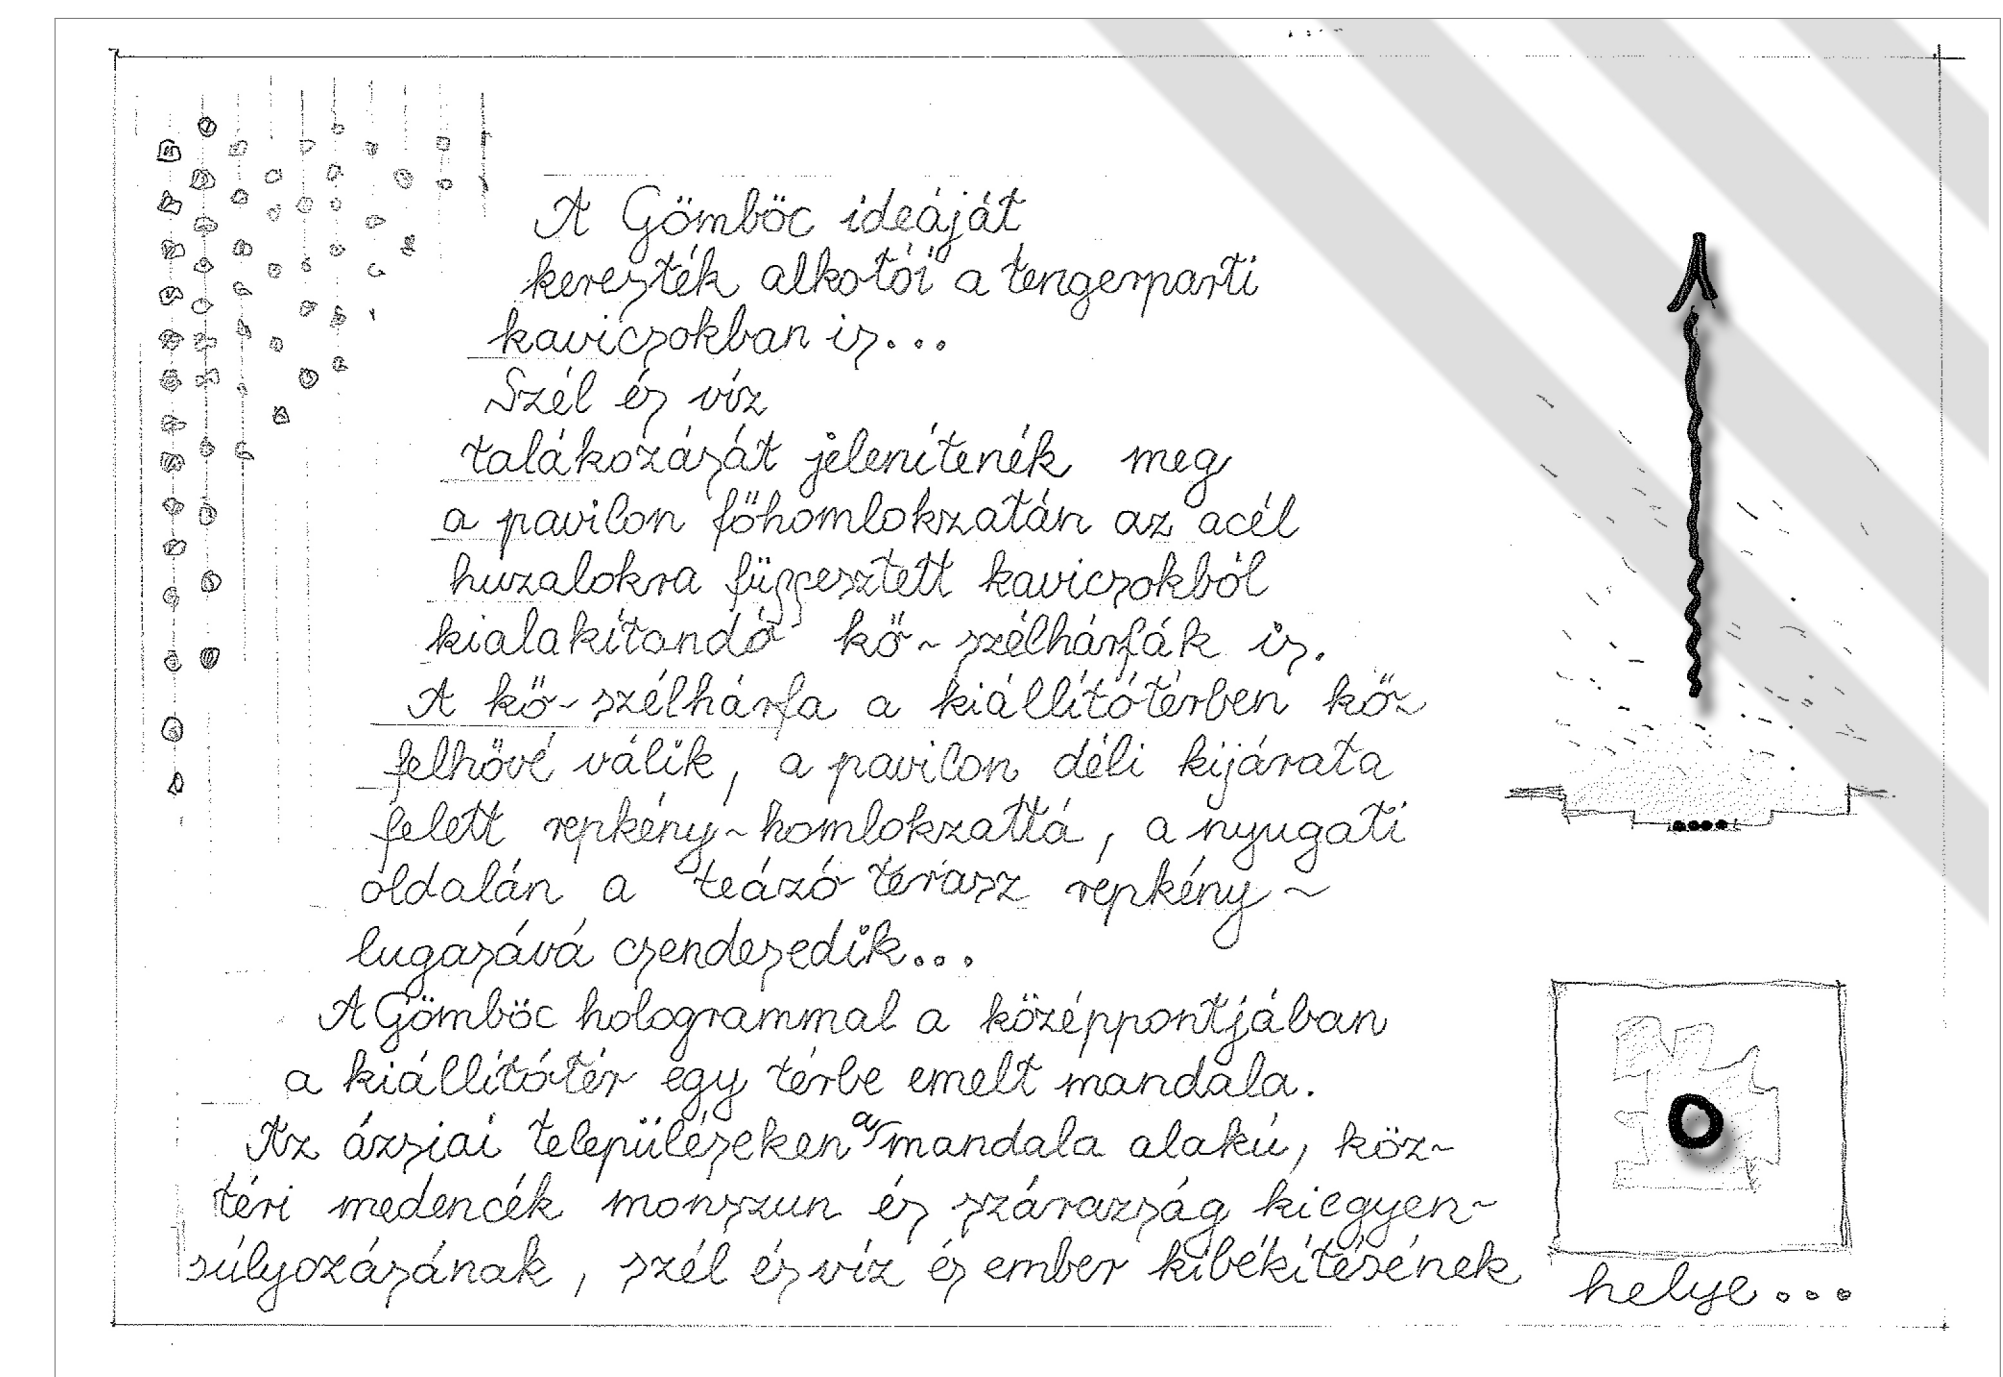 A Gömböc ideáját
keresték alkotói a tengerparti
kavicsokban is...
Szél és víz
talákozását jelenítenék meg
a pavilon főhomlokzatán az acél
huzalokra függesztett kavicsokból
kialakítandó kő~szélhárfák is.
A kő~szélhárfa a kiállítótérben kőz
felhővé válik, a pavilon déli kijárata
felett repkény~homlokzattá, a nyugati
oldalán a teázó terasz repkény~
lugasává csendesedik...
A Gömböc hologrammal a középpontjában
a kiállítótér egy térbe emelt mandala.
Az ázsiai településeken a mandala alakú, köz~
téri medencék monszun és szárazság kiegyen~
súlyozásának, szél és víz és ember kibékítésének helye...